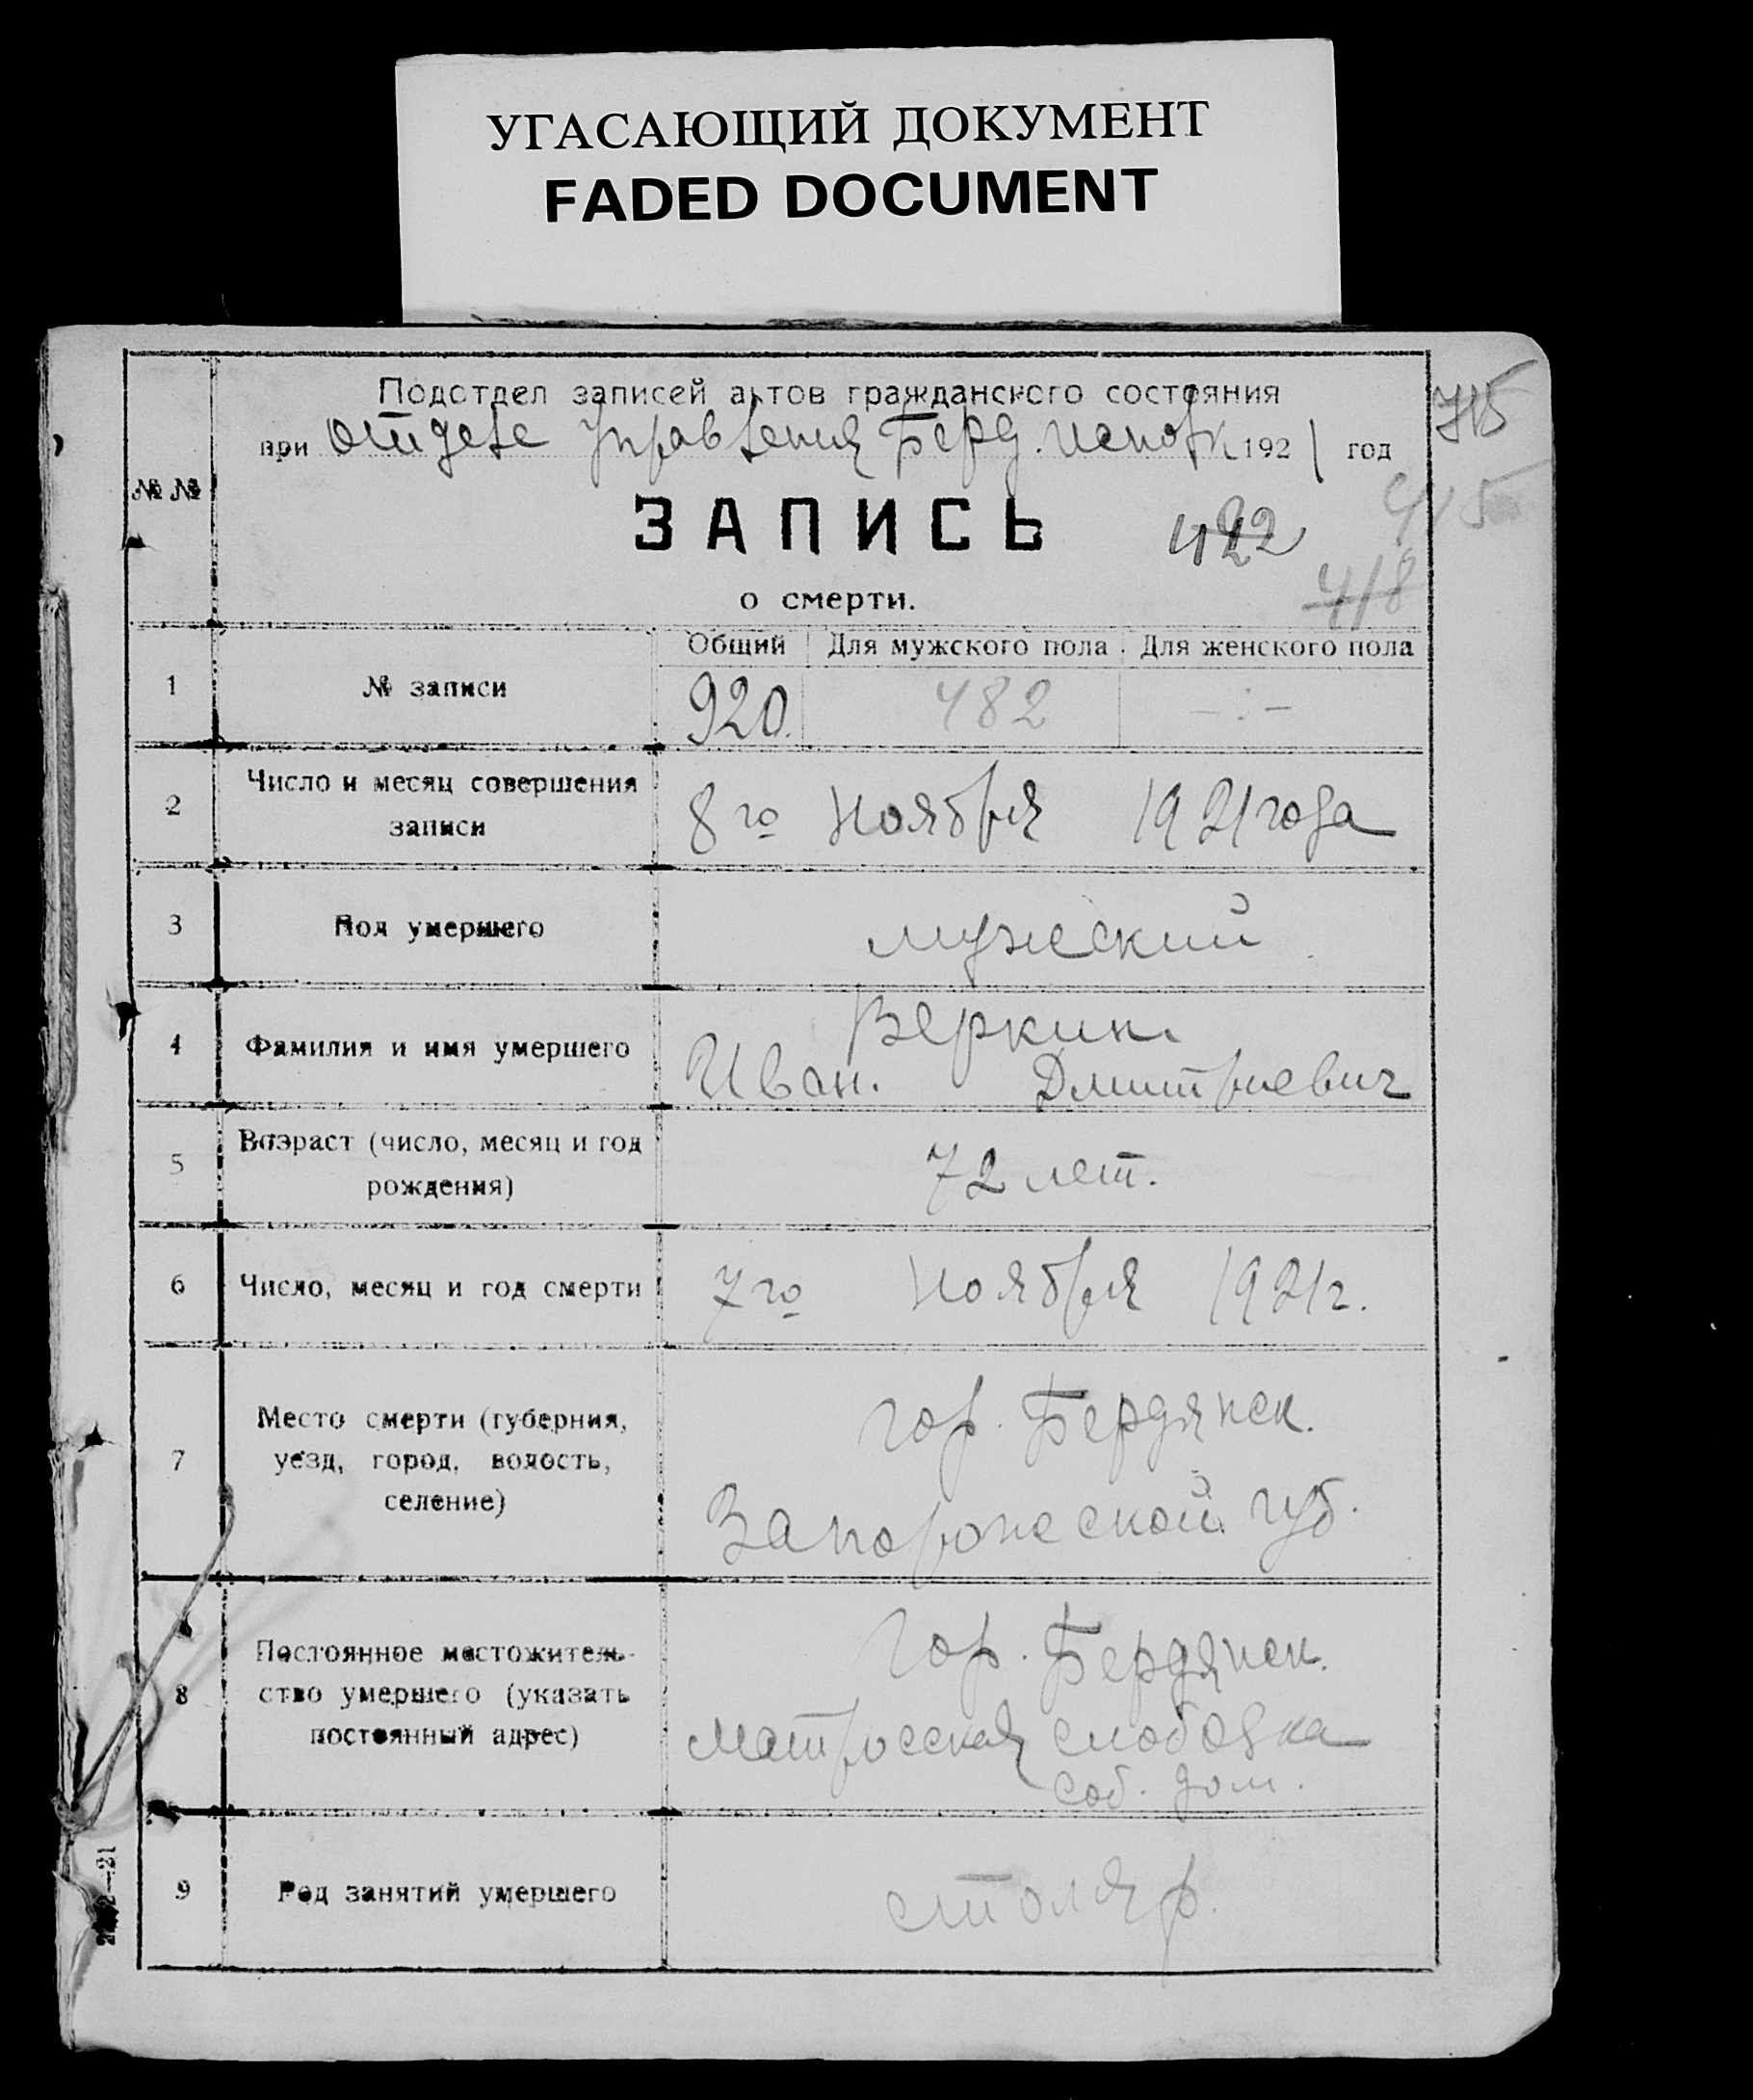 УГАСАЮЩИЙ ДОКУМЕНТ
FADED DOCUMENT
Подотдел записей актов гражданского состояния
при отделе Управления Берд. исполк 1921 год
№ №
ЗАПИСЬ
422
415
418
о смерти.
Общий Для мужского пола Для женского пола
1 № записи 920. 482 -:-
2 Число и месяц совершения
записи
8го Ноября 1921 года
3 Пол умершего мужеский
4 Фамилия и имя умершего
Веркин.
Иван. Дмитриевич
5 Возраст (число, месяц и год
рождения)
72 лет.
6 Число, месяц и год смерти 7го Ноября 1921г.
7 Место смерти (губерния,
уезд, город, волость,
селение)
гор. Бердянск.
Запорожеской губ.
8 Постоянное местожитель-
ство умершего (указать
постоянный адрес)
Гор. Бердянск.
Матросская слободка
соб. дом.
9 Род занятий умершего столяр.